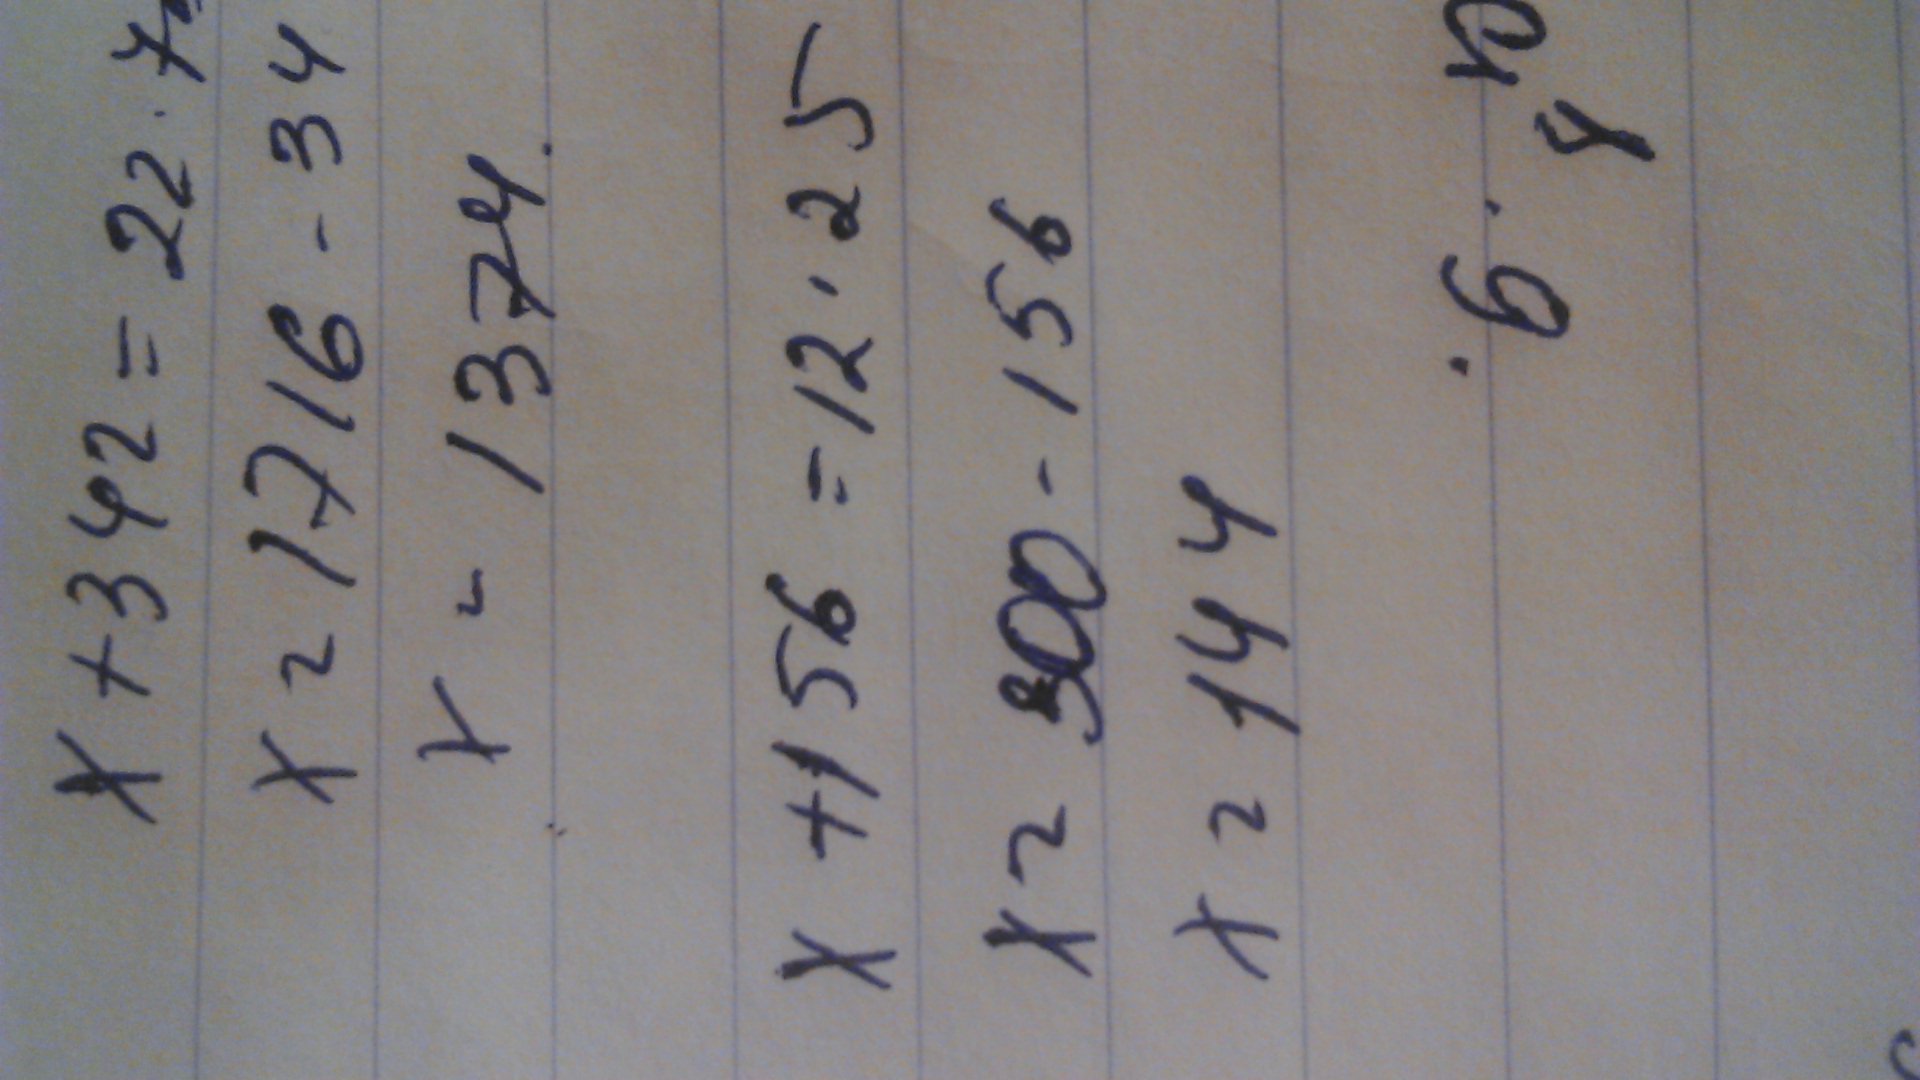 x + 342 = 22 · 7
x = 1716 - 34
x - 1374.
x + 156 = 12 · 25
x = 300 - 156
x = 144